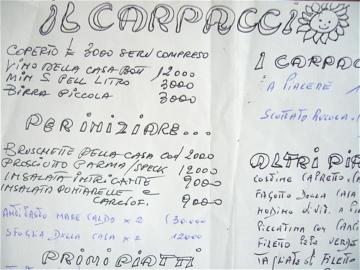 IL CARPACCI
COPERTO £ 3000 SERV COMPRESO
VINO DELLA CASA BOTT 12000
MIN S PELL LITRO 3000
BIRRA PICCOLA 3000
PER INIZIARE...
BRUSCHETTE DELLA CASA CAD 2000
PROSCIUTTO PARMA/SPECK 12000
INSALATA INTRIGANTE 9000
INSALATA PUNTARELLE E
CARCIOF. 9000
ANTIPASTO MARE CALDO X 2 (30.000
SFOGLIA DELLA CASA X 2 12000
PRIMI PIATTI
I CARPAC
A PIACERE 1
SCOTTATO RUCOLA
ALTRI PIA
COSTINE CAPRETTO
FAGOTTO DELLA CASA
NODINO DI VIT. A PI
PICCATINA CON
FILETTO PEPE VERDE
TAGLIATA DI FILETTO